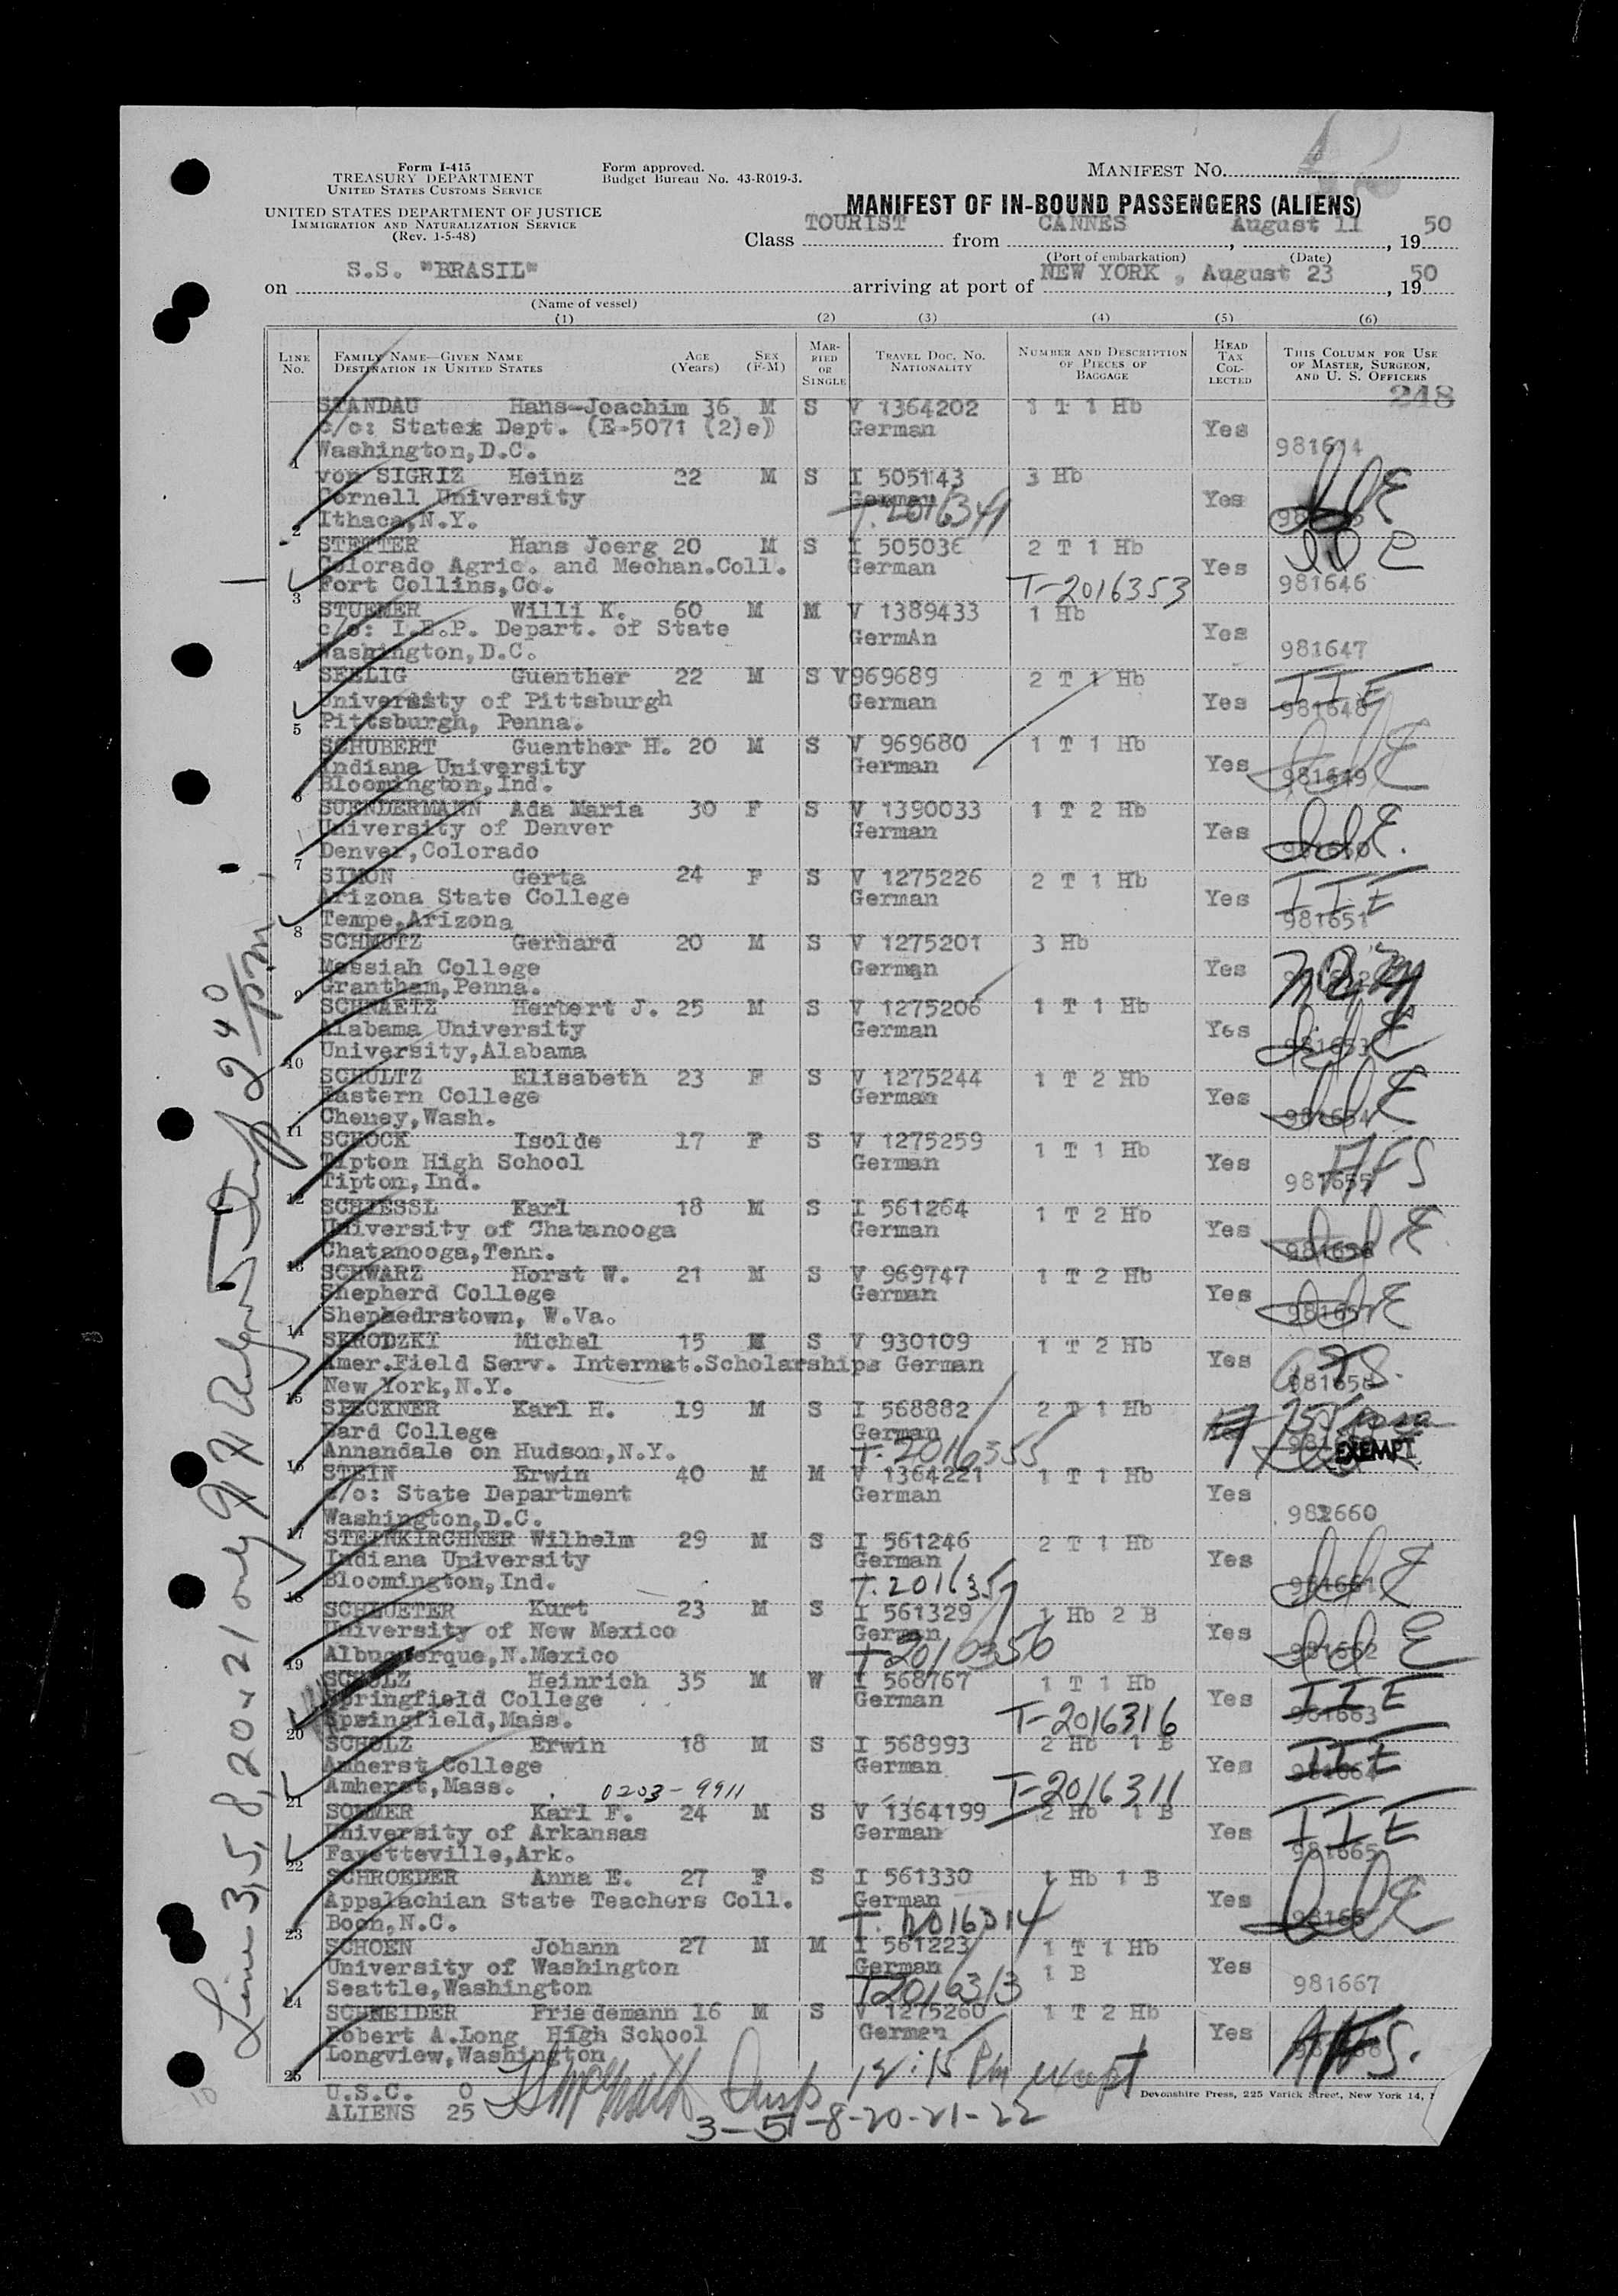 Form I-415
TREASURY DEPARTMENT
UNITED STATES CUSTOMS SERVICE
UNITED STATES DEPARTMENT OF JUSTICE
IMMIGRATION AND NATURALIZATION SERVICE
(Rev. 1-5-48)
Form approved.
Budget Bureau No. 43-R019-3.
MANIFEST NO.
MANIFEST OF IN-BOUND PASSENGERS (ALIENS)
Class TOURIST from CANNES, August 11, 1950
(Port of embarkation) (Date)
on S.S. "BRASIL" arriving at port of NEW YORK, August 23, 1950
(Name of vessel)
(1) (2) (3) (4) (5) (6)
LINE No. FAMILY NAME—GIVEN NAME DESTINATION IN UNITED STATES AGE (Years) SEX (F-M) MARRIED OR SINGLE TRAVEL DOC. NO. NATIONALITY NUMBER AND DESCRIPTION OF PIECES OF BAGGAGE HEAD TAX COLLECTED THIS COLUMN FOR USE OF MASTER, SURGEON, AND U. S. OFFICERS
248
STANDAU Hans-Joachim 36 M S V 1364202 1 T 1 Hb
c/o: State Dept. (E-5071 (2)e) German Yes
1 Washington,D.C. 981644
von SIGRIZ Heinz 22 M S I 505143 3 Hb
Cornell University German Yes
2 Ithaca,N.Y. T-2016341
STETTER Hans Joerg 20 M S I 505036 2 T 1 Hb
Colorado Agric. and Mechan.Coll. German Yes
3 Fort Collins,Co. T-2016353 981646
STUEMER Willi K. 60 M M V 1389433 1 Hb
c/o: I.E.P. Depart. of State GermAn Yes
4 Washington,D.C. 981647
SEELIG Guenther 22 M S V969689 2 T 1 Hb IIE
University of Pittsburgh German Yes 981648
5 Pittsburgh, Penna.
SCHUBERT Guenther H. 20 M S V 969680 1 T 1 Hb
Indiana University German Yes 981649
6 Bloomington,Ind.
SUENDERMANN Ada Maria 30 F S V 1390033 1 T 2 Hb
University of Denver German Yes
7 Denver,Colorado 981650
SIMON Gerta 24 F S V 1275226 2 T 1 Hb
Arizona State College German Yes IIE
8 Tempe,Arizona 981651
SCHMUTZ Gerhard 20 M S V 1275201 3 Hb
Messiah College German Yes
9 Grantham,Penna.
SCHNAETZ Herbert J. 25 M S V 1275206 1 T 1 Hb
Alabama University German Yes
10 University,Alabama 981653
SCHULTZ Elisabeth 23 F S V 1275244 1 T 2 Hb
Eastern College German Yes
11 Cheney,Wash. 981654
SCHOCK Isolde 17 F S V 1275259 1 T 1 Hb
Tipton High School German Yes AFS
12 Tipton,Ind. 981655
SCHIESSL Karl 18 M S I 561264 1 T 2 Hb
University of Chatanooga German Yes
13 Chatanooga,Tenn. 981656
SCHWARZ Horst W. 21 M S V 969747 1 T 2 Hb
Shepherd College German Yes
14 Shephedrstown, W.Va. 981657
SKRODZKI Michel 15 M S V 930109 1 T 2 Hb
Amer.Field Serv. Internat.Scholarships German Yes
15 New York,N.Y. 981658
SPECKNER Karl H. 19 M S I 568882 2 T 1 Hb
Bard College German
16 Annandale on Hudson,N.Y. T-2016355 EXEMPT
STEIN Erwin 40 M M V 1364221 1 T 1 Hb
c/o: State Department German Yes
17 Washington,D.C. 982660
STEINKIRCHNER Wilhelm 29 M S I 561246 2 T 1 Hb
Indiana University German Yes
18 Bloomington,Ind. 981661
SCHLUETER Kurt 23 M S I 561329 1 Hb 2 B
University of New Mexico German Yes
19 Albuquerque,N.Mexico T-2016356 981662
SCHOLZ Heinrich 35 M W I 568767 1 T 1 Hb
Springfield College German Yes IIE
20 Springfield,Mass. T-2016316 981663
SCHOLZ Erwin 18 M S I 568993 2 Hb 1 B
Amherst College German Yes IIE
21 Amherst,Mass. 0203-9911 T-2016311 981664
SOMMER Karl F. 24 M S V 1364199 2 Hb 1 B
University of Arkansas German Yes IIE
22 Fayetteville,Ark. 981665
SCHROEDER Anna E. 27 F S I 561330 1 Hb 1 B
Appalachian State Teachers Coll. German Yes
23 Boon,N.C. T-2016314
SCHOEN Johann 27 M M I 561223 1 T 1 Hb
University of Washington German 1 B Yes
24 Seattle,Washington T2016313 981667
SCHNEIDER Friedemann 16 M S V 1275260 1 T 2 Hb
Robert A.Long High School German Yes AFS.
25 Longview,Washington
U.S.C. 0
ALIENS 25
Insp 12:15 Pm except
3-5-8-20-21-22
Devonshire Press, 225 Varick Street, New York 14,
Lines 3,5,8,20+21 only 2 40/pm